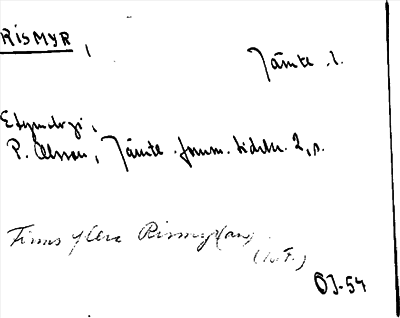 RISMYR,
Jämte. l.
Etymologi,
P. Olsson, Jämte. fornm. tidskr. 2, s.
Finns flera Rismyr(ar).
(W.F.)
OJ-54